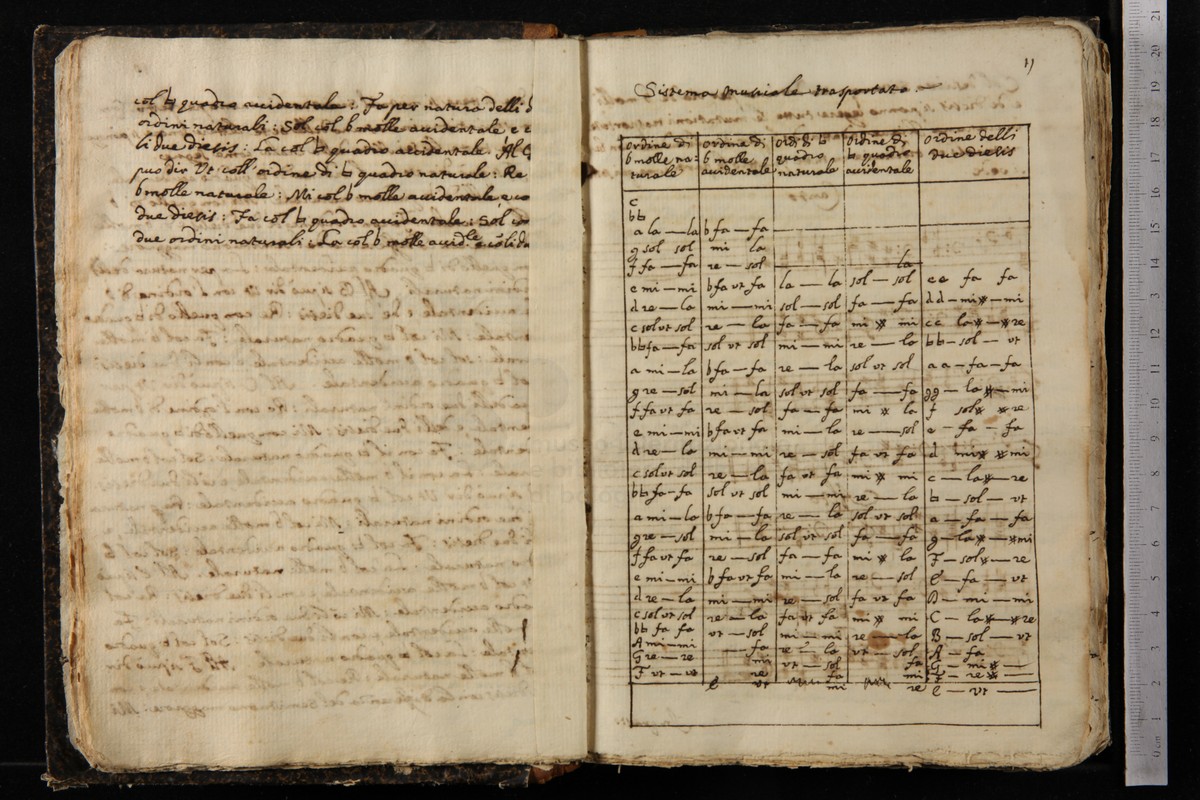 col ♮ quadro accidentale : Fa per natura delli
ordini naturali : Sol col b molle accidentale e
li due diesis : La col ♮ quadro accidentale . Al
può dir Vt coll' ordine di ♮ quadro naturale : Re
b molle naturale : Mi col b molle accidentale e co
due diesis : Fa col ♮ quadro accidentale : Sol co
due ordini naturali : La col b molle accid.le e colli du
Sistema musicale trasportato
ordine di b molle naturale
ordine di b molle accidentale
ord: di ♮ quadro naturale
ordine di ♮ quadro accidentale
ordine delli due diesis
c
bb
a la — la b fa — fa
g sol sol mi la
f fa — fa re — sol la
e mi — mi b fa vt fa la — la sol — sol ee fa fa
d re — la mi — mi sol — sol fa — fa dd — mi※ — mi
c sol vt sol re — la fa — fa mi ※ mi cc la※ — ※re
bb fa — fa sol vt sol mi — mi re — la bb — sol — vt
a mi — la b fa — fa re — la sol vt sol aa — fa — fa
g re — sol mi — la sol vt sol fa — fa gg — la※ — mi
f fa vt fa re — sol fa — fa mi ※ la f sol※ ※re
e mi — mi b fa vt fa mi — la re — sol e — fa fa
d re — la mi — mi re — sol fa vt fa d mi※ ※mi
c sol vt sol re — la fa vt fa mi ※ mi c — la※ — re
bb fa — fa sol vt sol mi — mi re — la b — sol — vt
a mi — la b fa — fa re — la sol vt sol a — fa — fa
g re — sol mi — la sol vt sol fa — fa g — la※ — ※mi
f fa vt fa re — sol fa — fa mi ※ la F — sol※ — re
e mi — mi b fa vt fa mi — la re — sol E — fa — vt
d re — la mi — mi re — sol fa vt fa D — mi — mi
c sol vt sol re — la fa vt fa mi ※ mi C — la※ — ※re
bb fa fa vt — sol mi — mi re — la B — sol — vt
A mi — mi — fa re — la vt — sol A — fa
G re — re mi vt — sol fa G — mi※ —
F vt — vt re fa mi F — re※ —
E vt mi re E — vt —